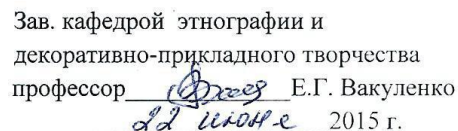 Зав. кафедрой этнографии и
декоративно-прикладного творчества
профессор Е.Г. Вакуленко
22 июне 2015 г.